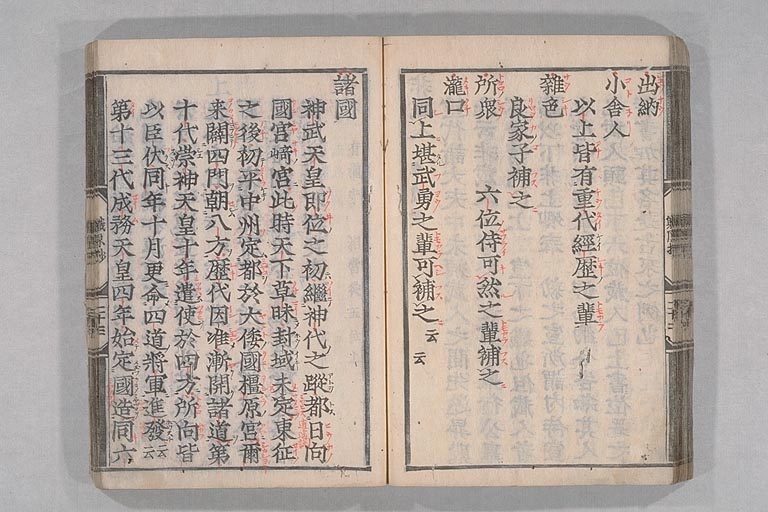 出納
小舎人
以上皆有重代經歷之輩
雜色
良家子補之
所衆　六位侍可然之輩補之
瀧口
同上堪武勇之輩可補之云云
諸國
神武天皇即位之初繼神代之蹤都日向
國宮﨑宮此時天下草昧封域未定東征
之後初平中州定都於大倭國橿原宮爾
来闢四門朝八方歴代因准漸開諸道第
十代崇神天皇十年遣使於四方所向皆
以臣伏同年十月更命四道將軍進發云云
第十三代成務天皇四年始定國造同六